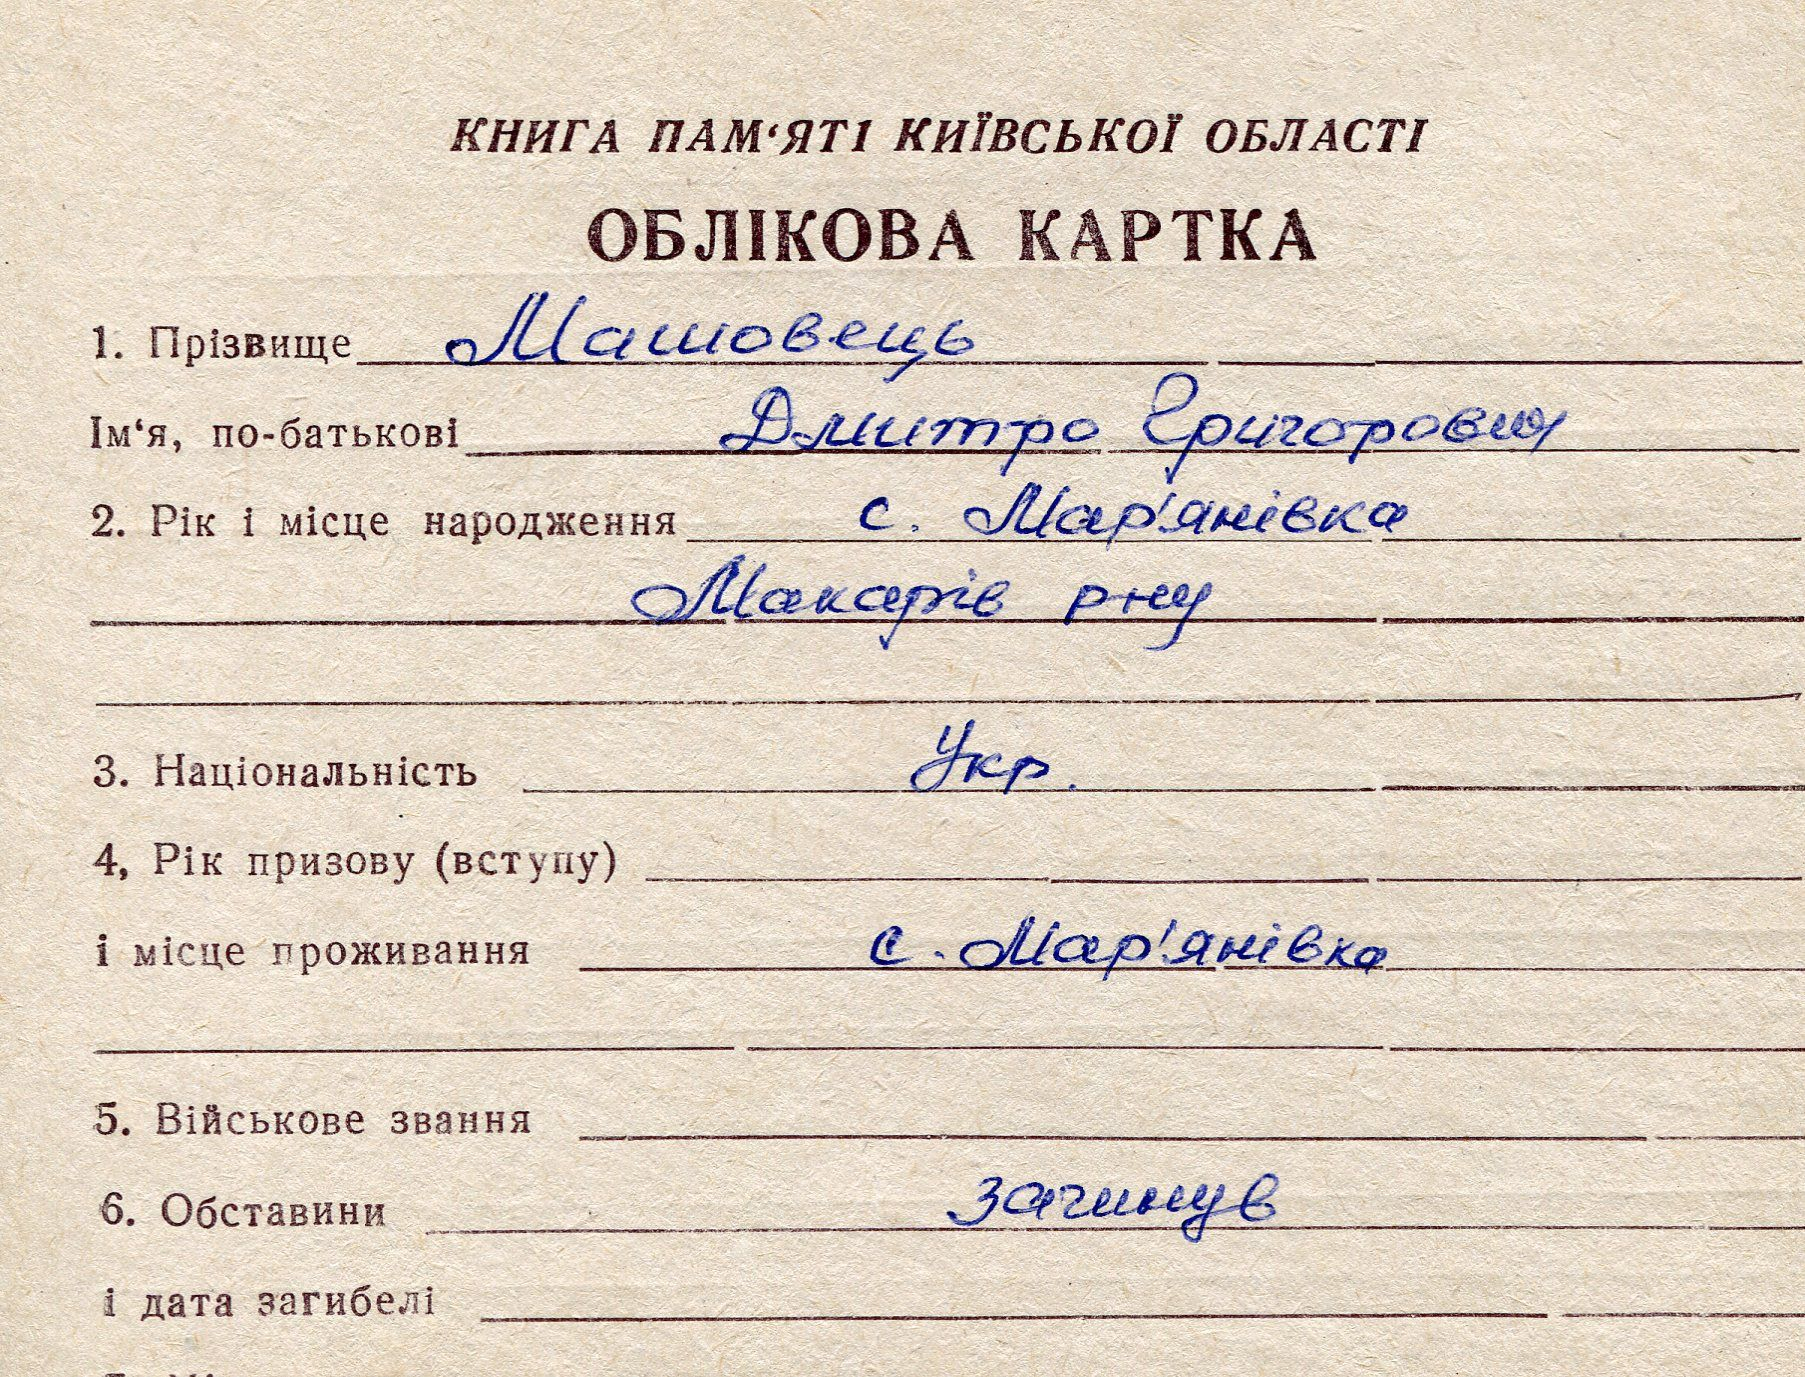 КНИГА ПАМ‘ЯТІ КИЇВСЬКОЇ ОБЛАСТІ
ОБЛІКОВА КАРТКА
1. Прізвище Машовець
Ім‘я, по-батькові Дмитро Григорович
2. Рік і місце народження с. Мар'янівка
Макарів р-ну
3. Національність Укр.
4, Рік призову (вступу)
і місце проживання с. Мар'янівка
5. Військове звання
6. Обставини загинув
і дата загибелі